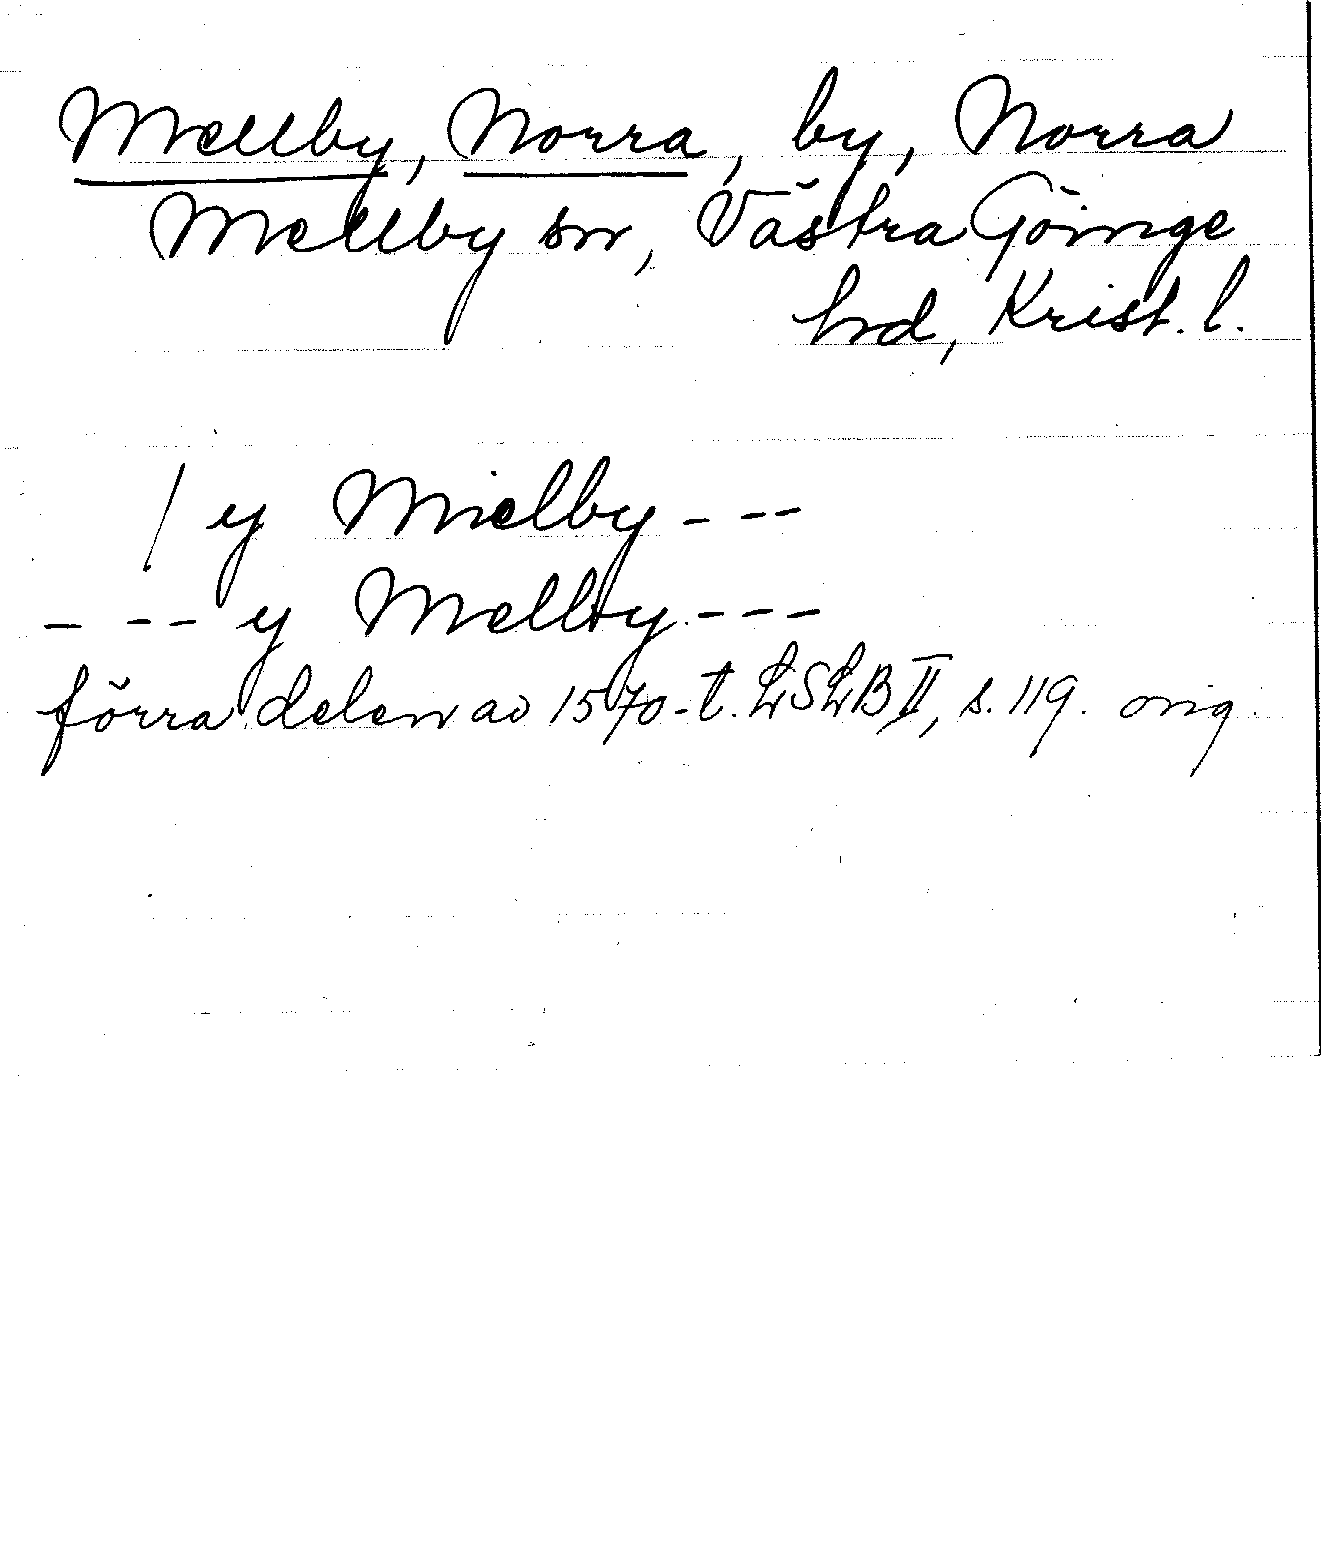 Mellby, Norra, by, Norra
Mellby sn, Västra Göinge
hd, Krist. l.
/ y Mielby - - -
- - - y Mellby - - -
förra delen av 1570-t. LSLB II, s. 119. orig.